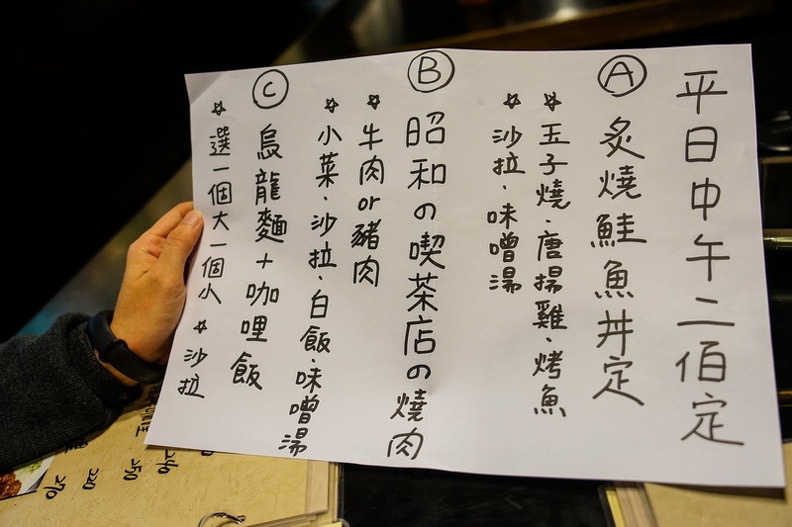 平日中午二佰定
Ⓐ 炙燒鮭魚丼定
☆玉子燒·唐揚雞·烤魚
☆沙拉·味噌湯
Ⓑ 昭和の喫茶店の燒肉
☆牛肉or豬肉
☆小菜·沙拉·白飯·味噌湯
Ⓒ 烏龍麵+咖哩飯
☆選一個大一個小☆沙拉
270
220
250